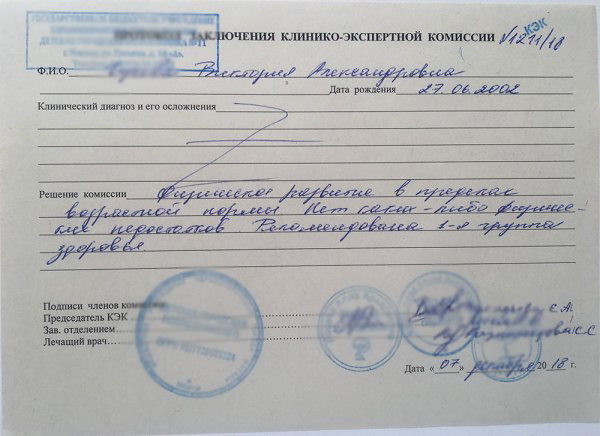 ГОСУДАРСТВЕННОЕ БЮДЖЕТНОЕ УЧРЕЖДЕНИЕ
ЗАКЛЮЧЕНИЯ КЛИНИКО-ЭКСПЕРТНОЙ КОМИССИИ №1211/18
КЭК
Ф.И.О. Виктория Александровна
Дата рождения 27.06.2002
Клинический диагноз и его осложнения
Решение комиссии Физическое развитие в пределах
возрастной нормы. Нет каких-либо физичес-
ких недостатков. Рекомендована 1-я группа
здоровья.
Подписи членов
Председатель КЭК
Зав. отделением
Лечащий врач
Дата «07» декабря 2018 г.